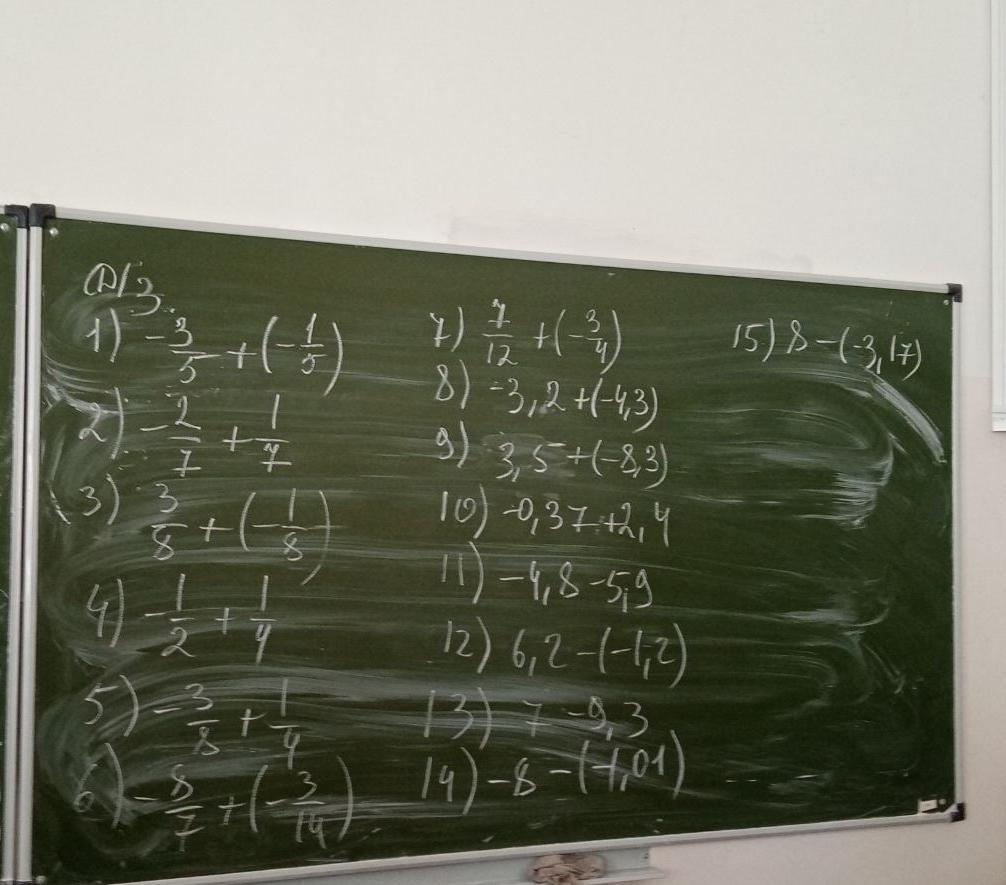 Д/З
1) -3/5 + (-1/5)
2) -2/7 + 1/7
3) 3/8 + (-1/8)
4) -1/2 + 1/4
5) -3/8 + 1/4
6) -8/7 + (-3/14)
7) 7/12 + (-3/4)
8) -3,2 + (-4,3)
9) 3,5 + (-8,3)
10) -0,37 + 2,4
11) -4,8 - 5,9
12) 6,2 - (-1,2)
13) 7 - 9,3
14) -8 - (-1,01)
15) 8 - (-3,17)